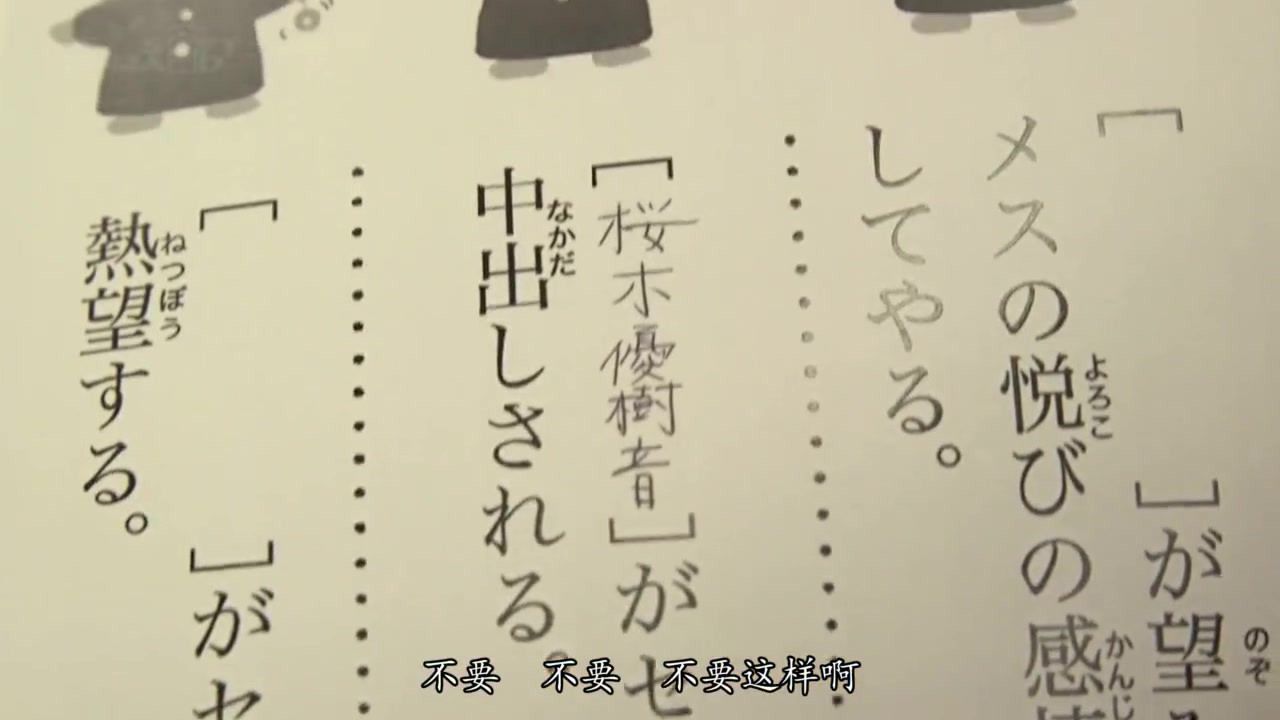 [ ]が望
のぞ
メスの悦びの感
よろこ
かんじ
してやる。
[桜木優樹音]がセ
中出しされる。
なかだ
[ ]がセ
熱望する。
ねつぼう
不要 不要 不要这样啊